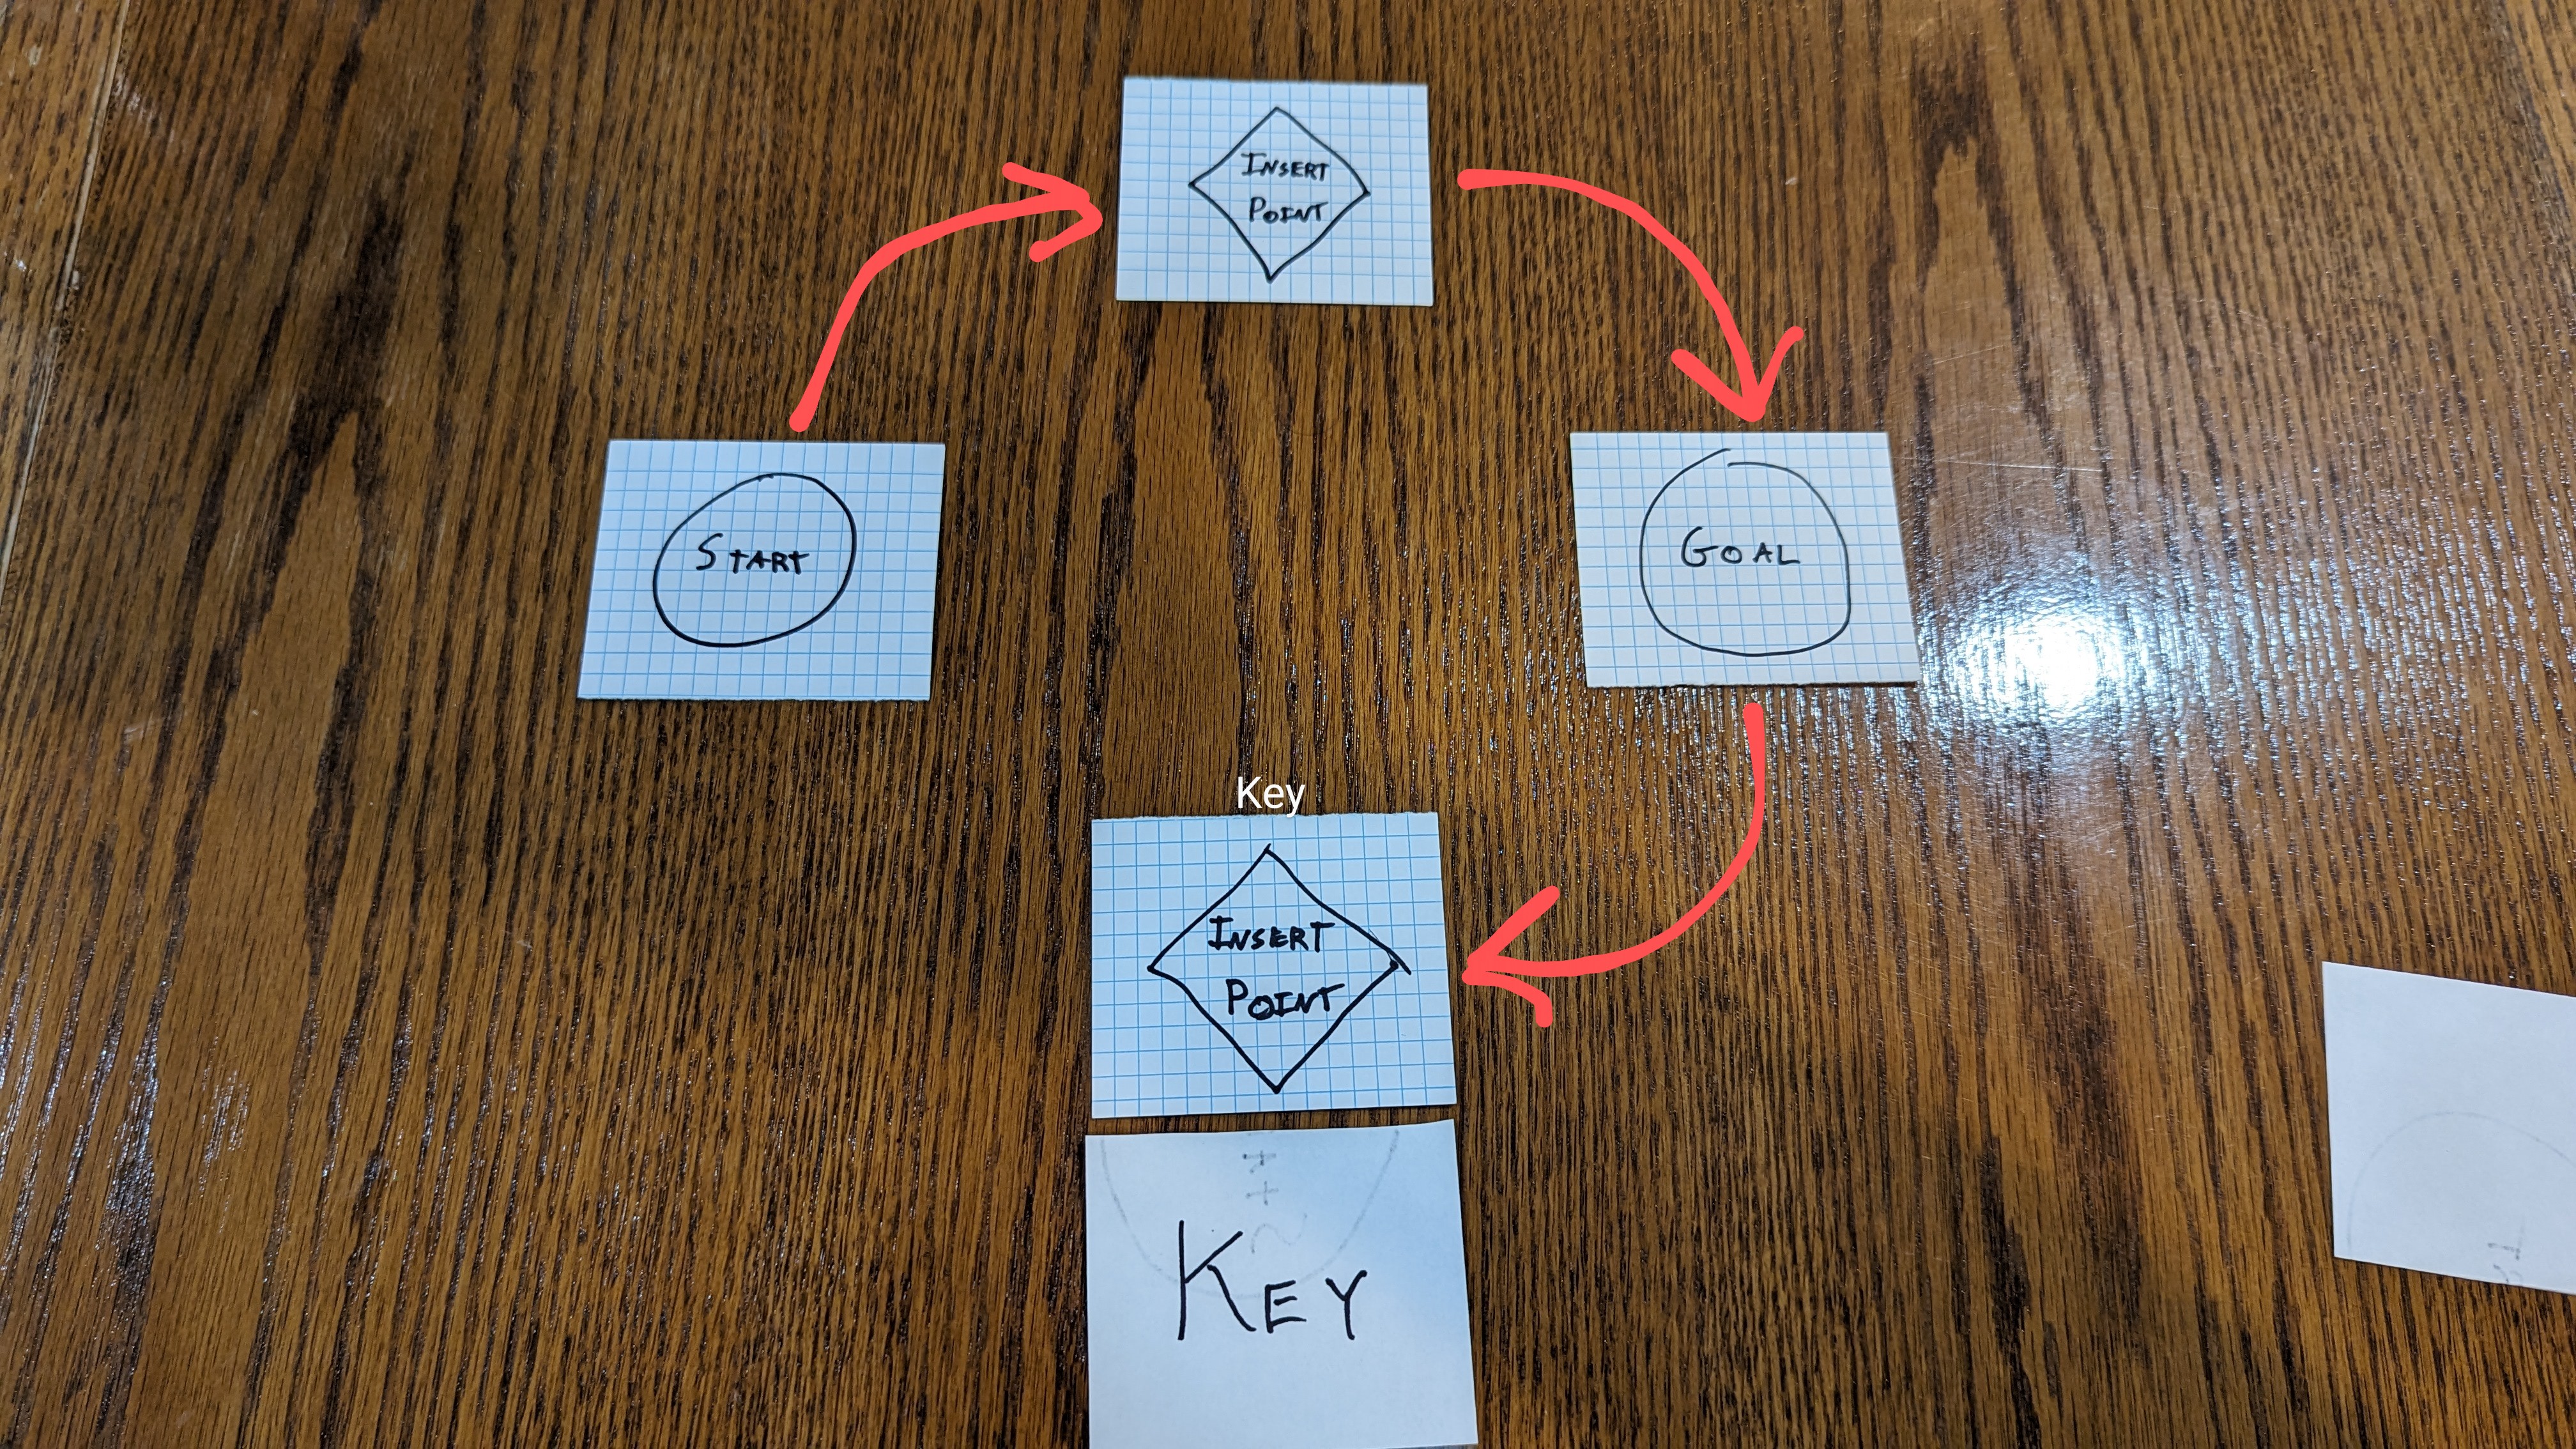 INSERT
POINT
START
GOAL
Key
INSERT
POINT
KEY